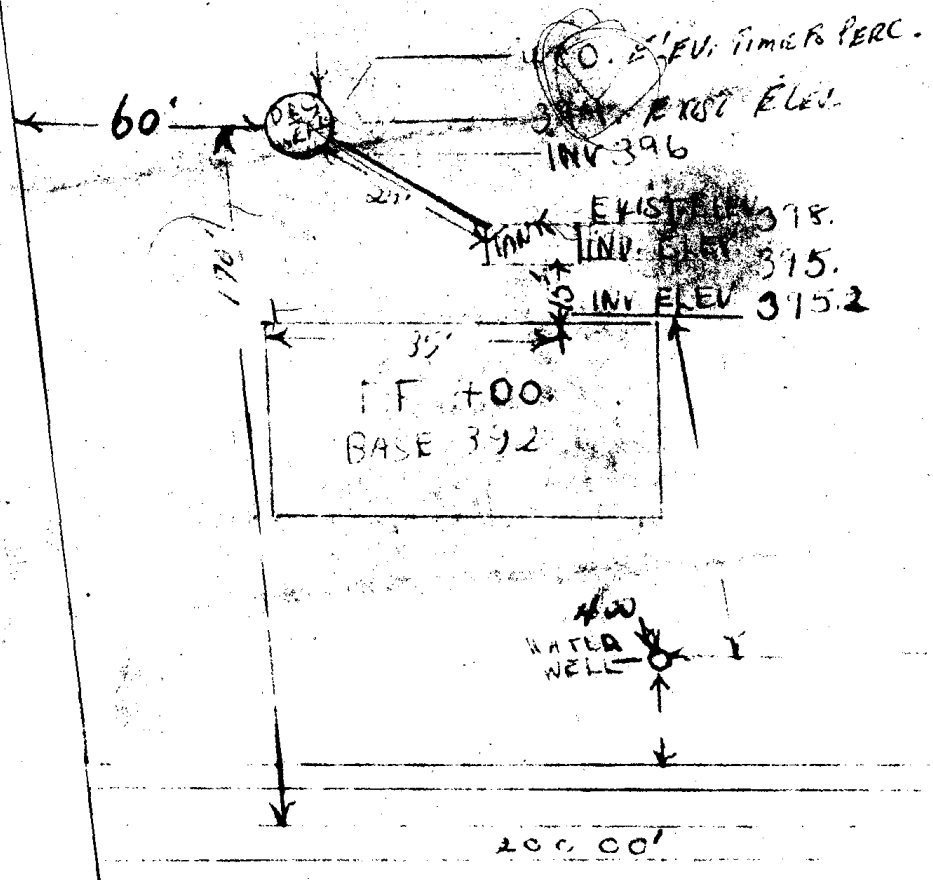 ELEV. TIME PERC.
60'
DRY
WELL
EXIST ELEV.
INV 396
TANK
EXIST ELEV 398.
INV. ELEV 395.
15'
INV ELEV 395.2
170'
35'
BASE 392
400
WATER
WELL
200.00'